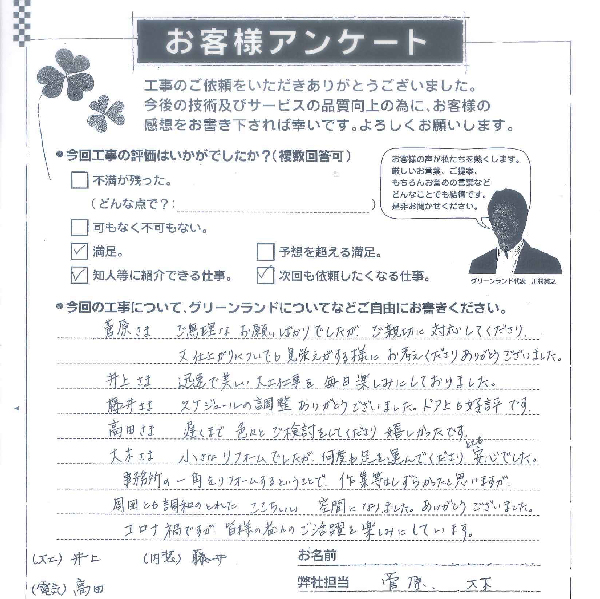 お客様アンケート
工事のご依頼をいただきありがとうございました。
今後の技術及びサービスの品質向上の為に、お客様の
感想をお書き下されば幸いです。よろしくお願いします。
●今回工事の評価はいかがでしたか?(複数回答可)
不満が残った。
(どんな点で?: )
可もなく不可もない。
満足。
予想を超える満足。
知人等に紹介できる仕事。
次回も依頼したくなる仕事。
お客様の声が私たちを熱くします。
厳しいお言葉、ご提案、
もちろんお褒めの言葉など
どんなことでも結構です。
是非お聞かせください。
グリーンランド代表
●今回の工事について、グリーンランドについてなどご自由にお書きください。
菅原さま ご無理なお願いばかりでしたが、ご親切に対応してくださり
又仕上がりについても見栄えがする様にお考えくださりありがとうございました。
井上さま 迅速で美しい大工工事を毎日楽しみにしておりました。
藤井さま スケジュールの調整ありがとうございました。ドア上も好評です。
高田さま 遅くまで色々とご検討をしてくださり嬉しかったです。
大木さま 小さなリフォームでしたが、何度も足を運んでくださりとても安心でした。
事務所の一角をリフォームするということで、作業等はしずらかったと思いますが
周囲とも調和のとれたここちいい空間になりました。ありがとうございました。
コロナ禍ですが皆様の益々のご活躍を楽しみにしています。
(大工) 井上 (内装) 藤井
お名前
(電気) 高田
弊社担当 菅原、大木